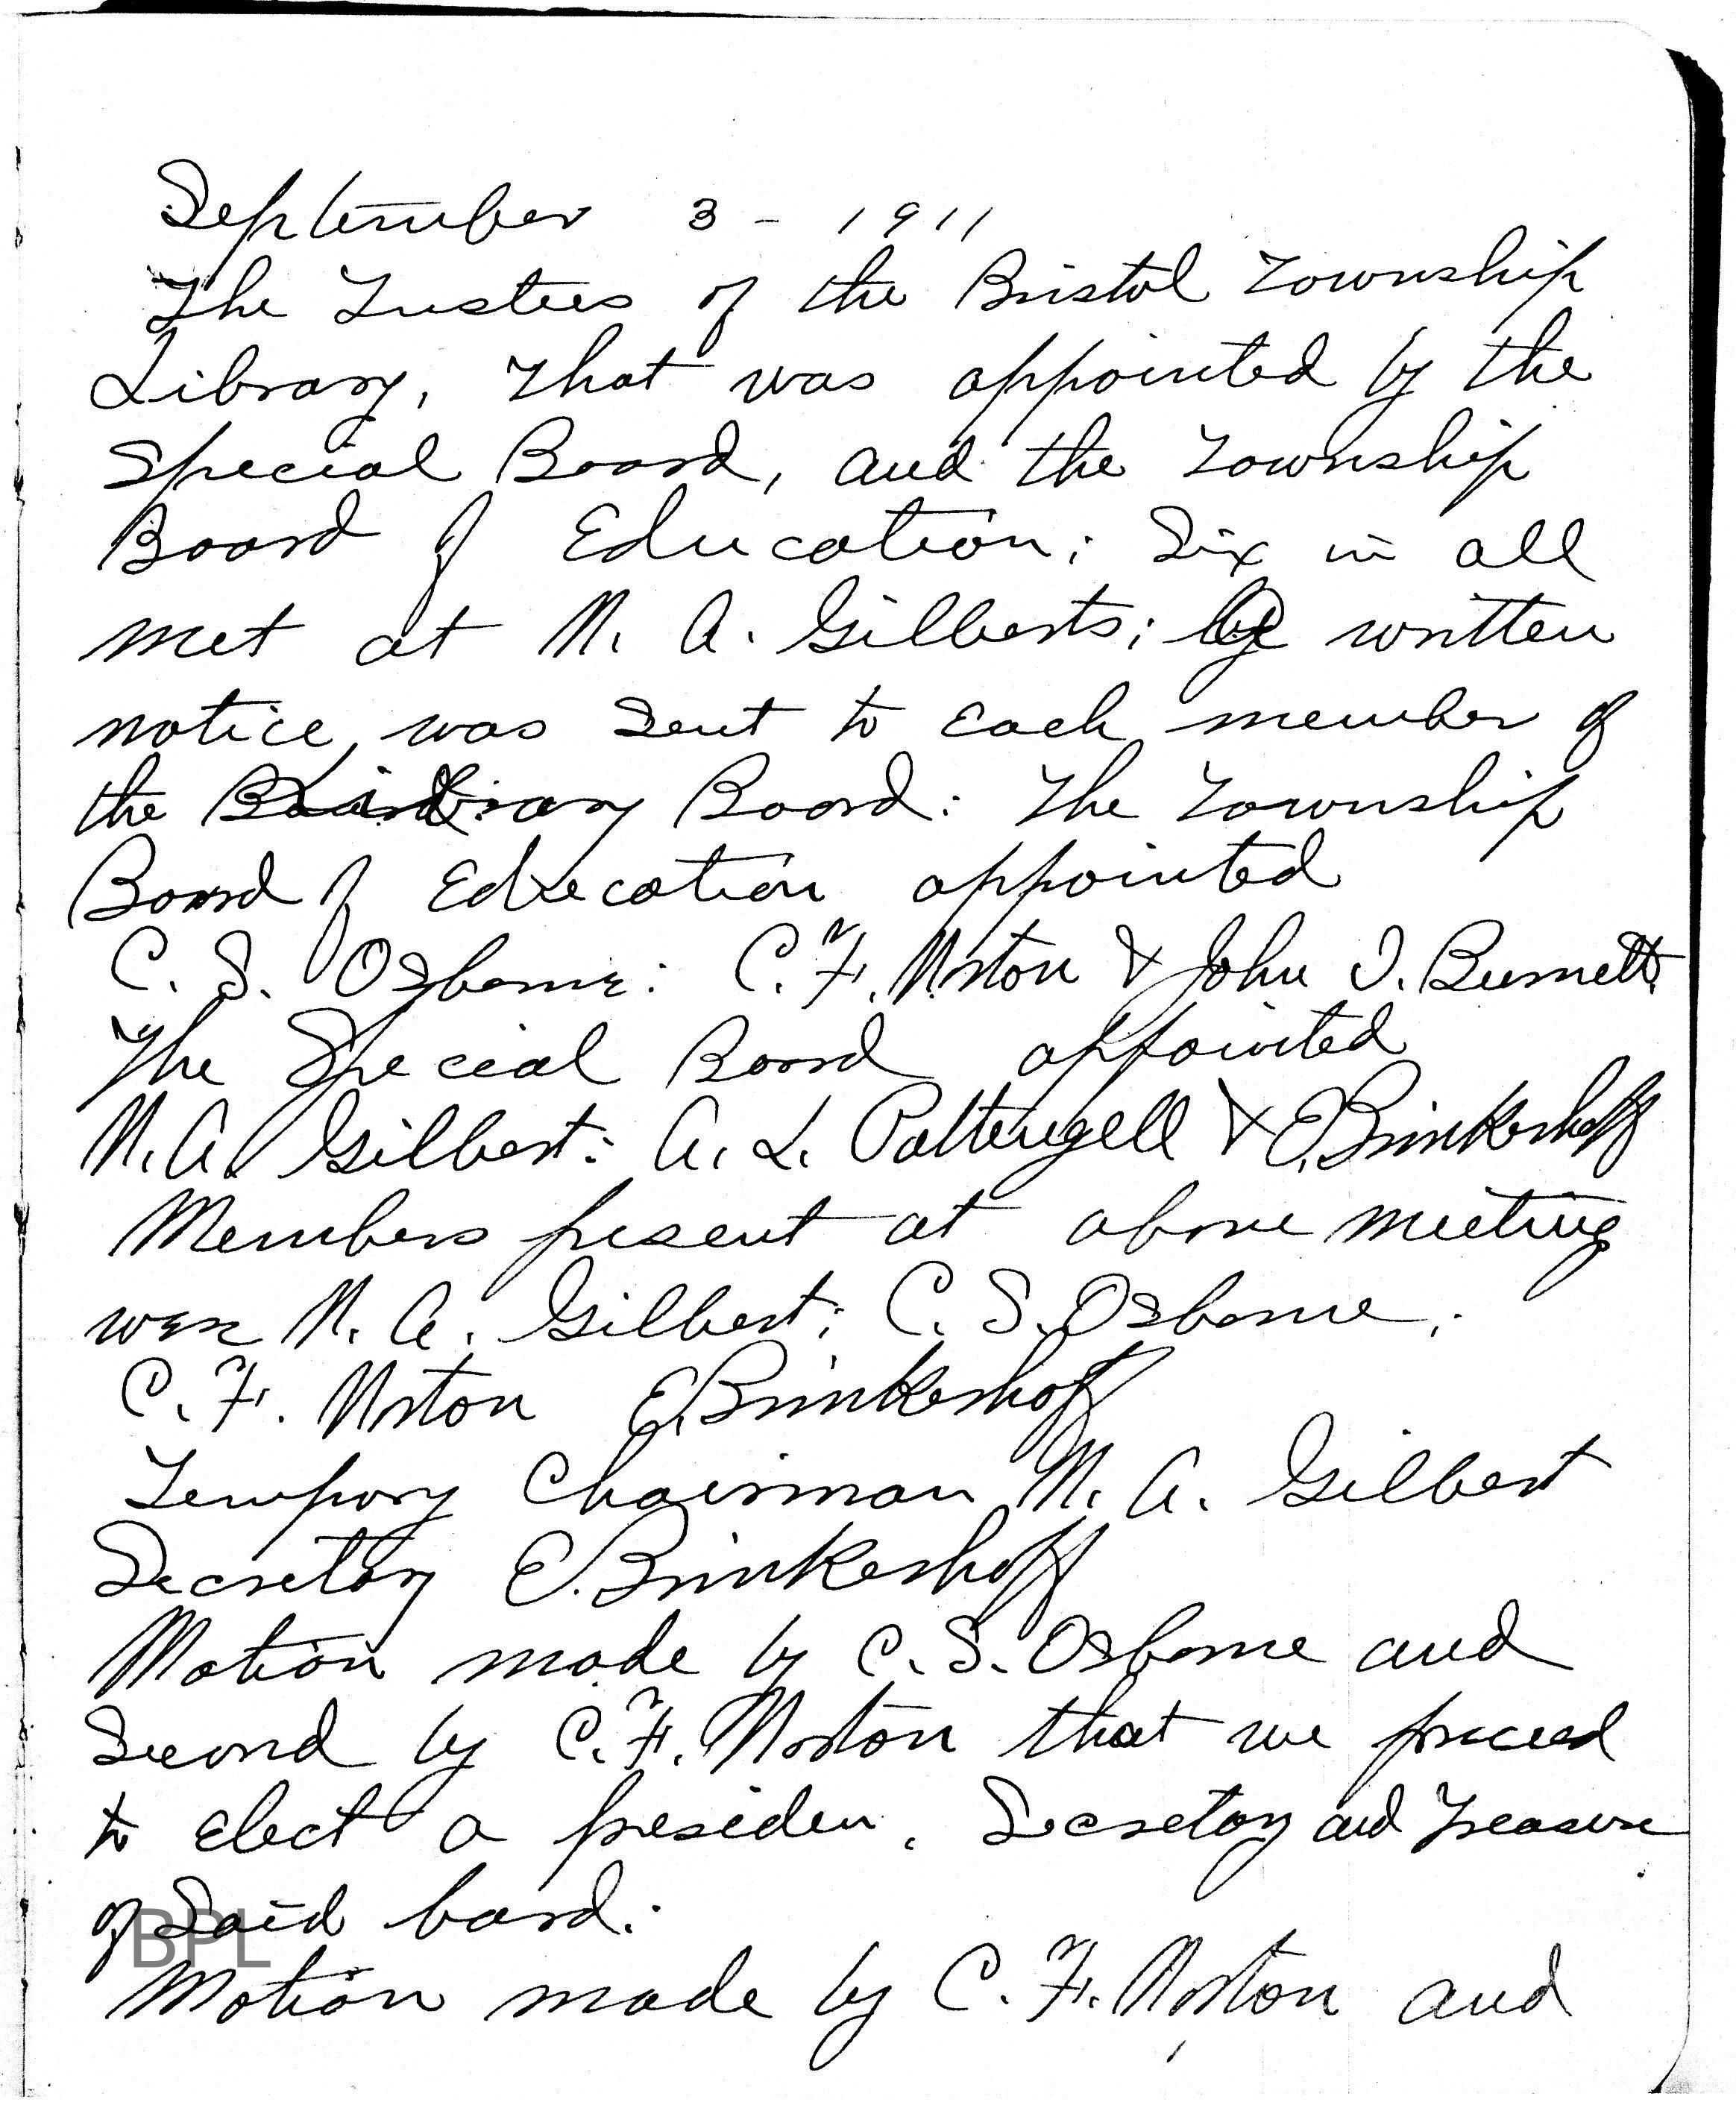 September 3 - 1911
The Trustees of the Bristol Township
Library, that was appointed by the
Special Board, and the Township
Board of Education; Six in all
met at N. A. Gilberts; written
notice, was sent to each member of
the Library Board: The Township
Board of Education appointed
C. S. Osborne: C. F. Norton & John I. Burnett
The Special Board appointed
N. A. Gilbert: A. L. Pattengell & E. Brinkerhoff
Members present at above meeting
were N. A. Gilbert; C. S. Osborne,
C. F. Norton E. Brinkerhoff
Tempory Chairman N. A. Gilbert
Secretary E. Brinkerhoff
Motion made by C. S. Osborne and
Second by C. F. Norton that we proceed
to elect a presiden, Secretary and Treasure
of Said board.
BPL
Motion made by C. F. Norton and